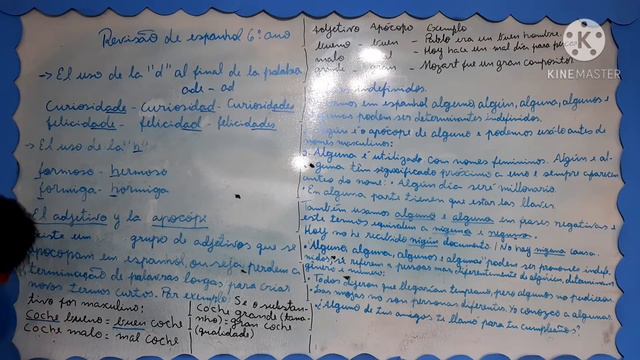 Revisão de espanhol 6º ano
→ El uso de la "d" al final de la palabra
ade - ad
Curiosidade - Curiosidad - Curiosidades
felicidade - felicidad - felicidades
→ El uso de la "h"
formoso - hermoso
formiga - hormiga
El adjetivo y la apócope
existe un grupo de adjetivos que se
apocopam em espanhol ou seja, perdem a
terminação de palavras longas para criar
novos termos curtos. Por exemplo: Se o substan-
tivo for masculino:
Coche bueno = buen coche
Coche malo = mal coche
coche grande (tama-
nho): gran coche
(qualidade)
adjetivo Apócope Exemplo
bueno - buen - Pablo era un buen hombre.
malo - mal - Hoy hace un mal día para pescar
grande - gran - Mozart fue un gran compositor
indefinidos.
em espanhol alguno, algún, alguna, algunos e
algunas podem ser determinantes indefinidos.
Algún é o apócope de alguno e podemos usá-lo antes de
nomes masculinos:
Alguna é utilizado com nomes femininos. Algún e al-
guna têm significado próximo a uno e sempre aparecem
antes do nome: • Algún día seré millonario.
• En alguna parte tienen que estar las llaves.
Também usamos alguno e alguna em frases negativas e
este termos equivalem a ninguna e ninguno.
Hoy no he recibido ningún documento / No hay ninguna causa.
• "Alguno, alguna, algunos e algunas" podem ser pronome indefi-
nidos, se referem a pessoas mas diferentemente de algún, determinam
gênero e número:
• Todos dijeron que llegarían temprano, pero algunos no pudieron.
• Esas mojas no son personas diferentes. Yo conozco a algunas.
• ¿Alguno de tus amigos te llamó para tu cumpleaños?
KINEMASTER